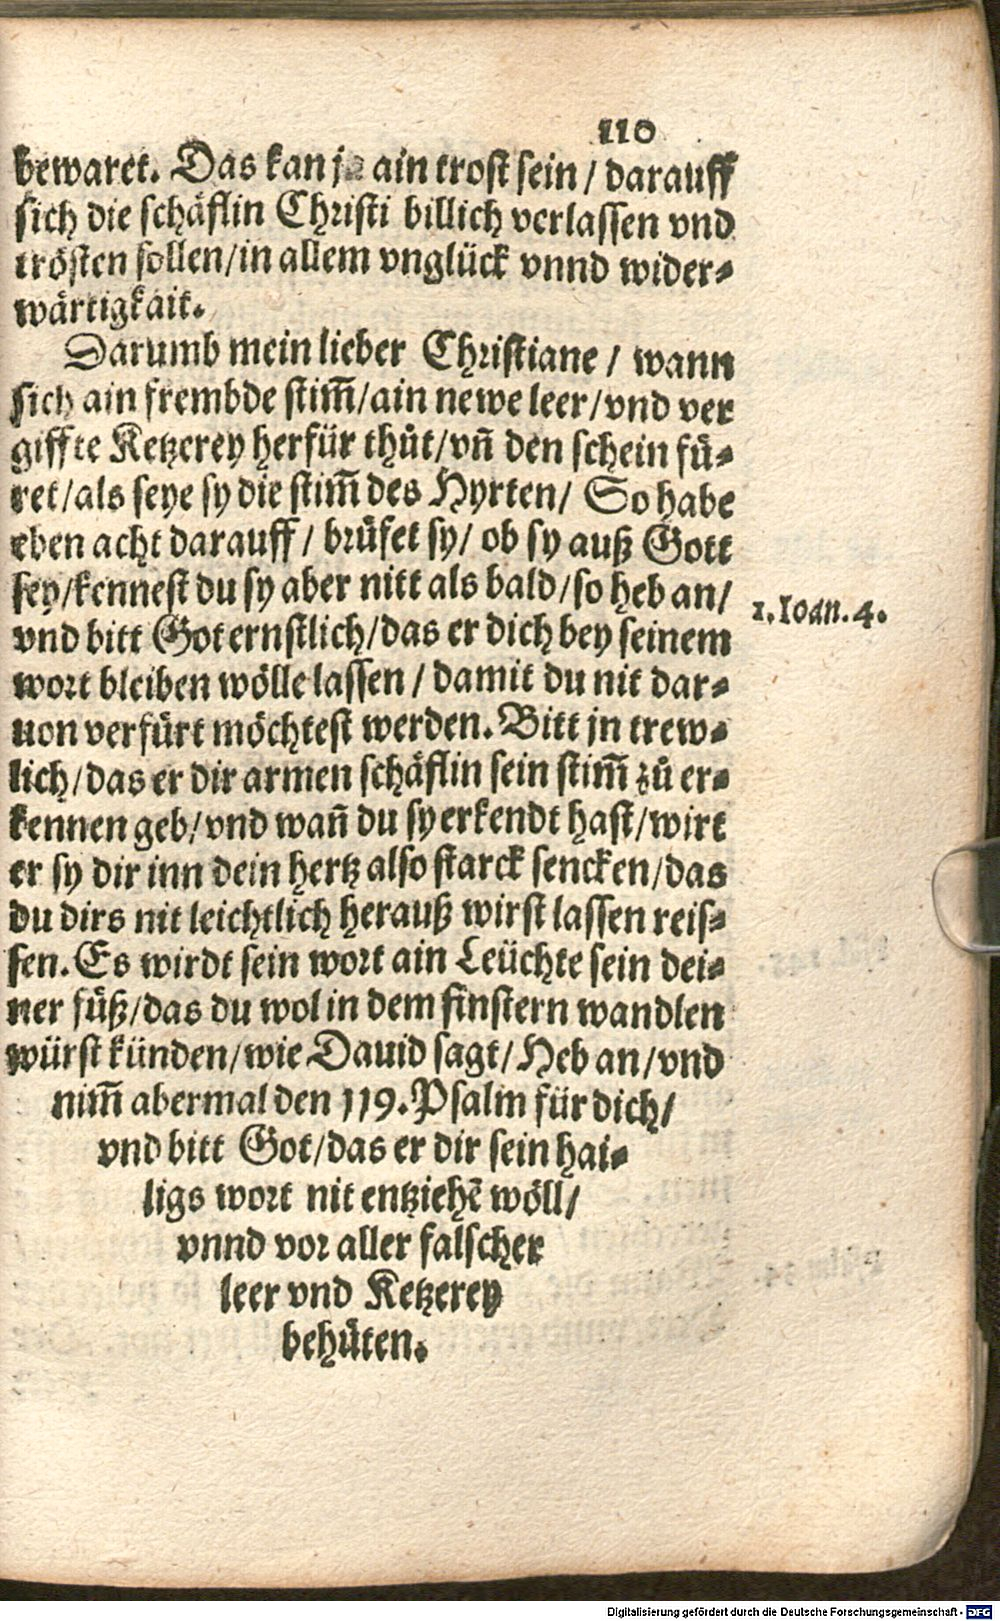 110
bewaret. Das kan ja ain trost sein / darauff
sich die schäflin Christi billich verlassen vnd
trösten sollen/in allem vnglück vnnd wider⸗
wärtigkait.
Darumb mein lieber Christiane / wann
sich ain frembde stim̃/ain newe leer/vnd ver
giffte Ketzerey herfür thůt/vñ den schein fü⸗
ret/als seye sy die stim̃ des Hyrten/ So habe
eben acht darauff / brüfet sy/ ob sy auß Gott
sey/kennest du sy aber nitt als bald/so heb an/
1. Ioan. 4.
vnd bitt Got ernstlich/das er dich bey seinem
wort bleiben wölle lassen / damit du nit dar⸗
uon verfürt möchtest werden. Bitt jn trew⸗
lich/das er dir armen schäflin sein stim̃ zů er⸗
kennen geb/vnd wañ du sy erkendt hast/wirt
er sy dir inn dein hertz also starck sencken/das
du dirs nit leichtlich herauß wirst lassen reis⸗
sen. Es wirdt sein wort ain Leüchte sein dei⸗
ner füß/das du wol in dem finstern wandlen
würst künden/wie Dauid sagt/ Heb an/vnd
nim̃ abermal den 119. Psalm für dich/
vnd bitt Got/das er dir sein hai⸗
ligs wort nit entziehẽ wöll/
vnnd vor aller falscher
leer vnd Ketzerey
behüten.
Digitalisierung gefördert durch die Deutsche Forschungsgemeinschaft - DFG